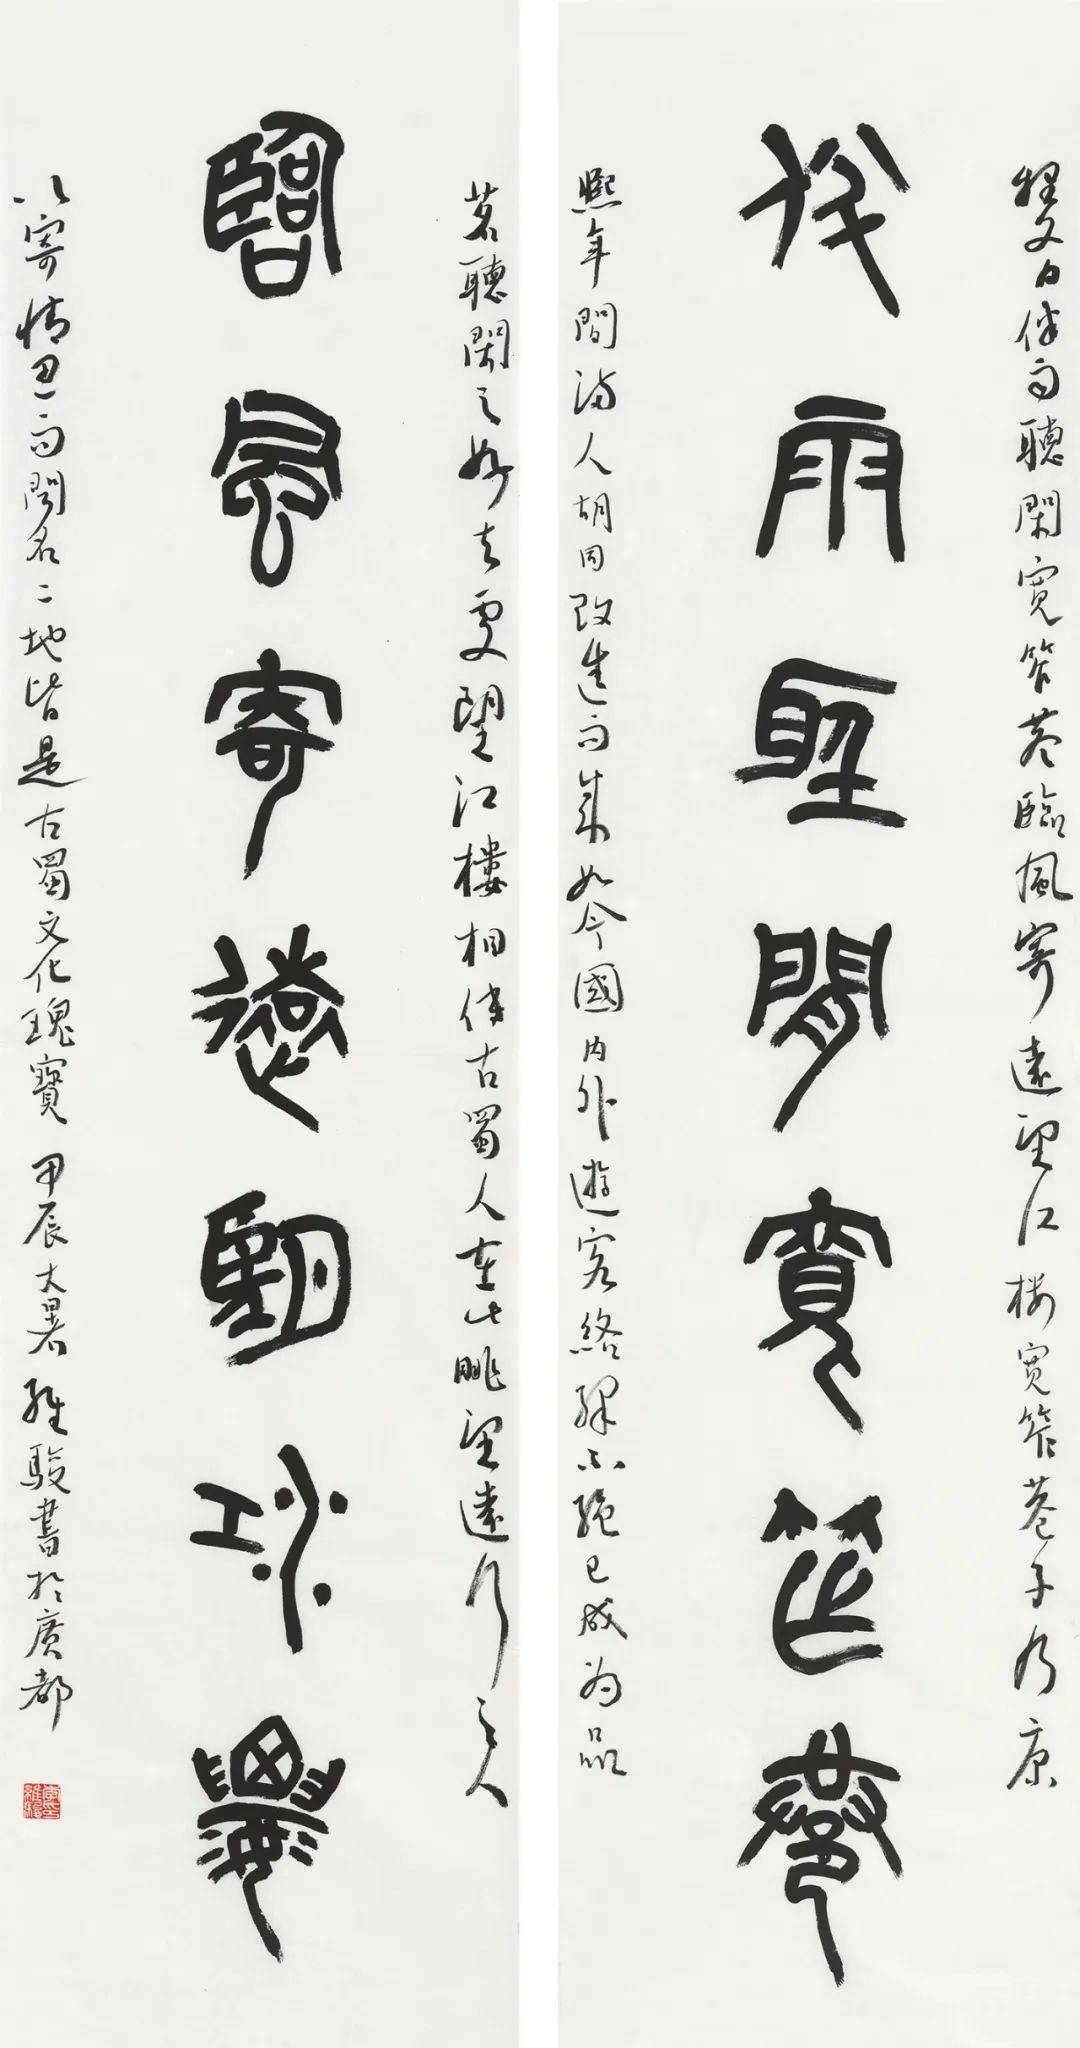 釋文曰伴雨聽閑寬窄巷臨風寄遠望江樓寬窄巷子乃康
伴雨聽閒寬窄巷
熙年間滿人胡同改造而來如今國內外遊客絡繹不絕已成為品
茗聽閑之好去處望江樓相傳古蜀人在此眺望遠行之人
臨風寄遠望江樓
以寄情思而聞名二地皆是古蜀文化瑰寶甲辰大暑維駿書於廣都